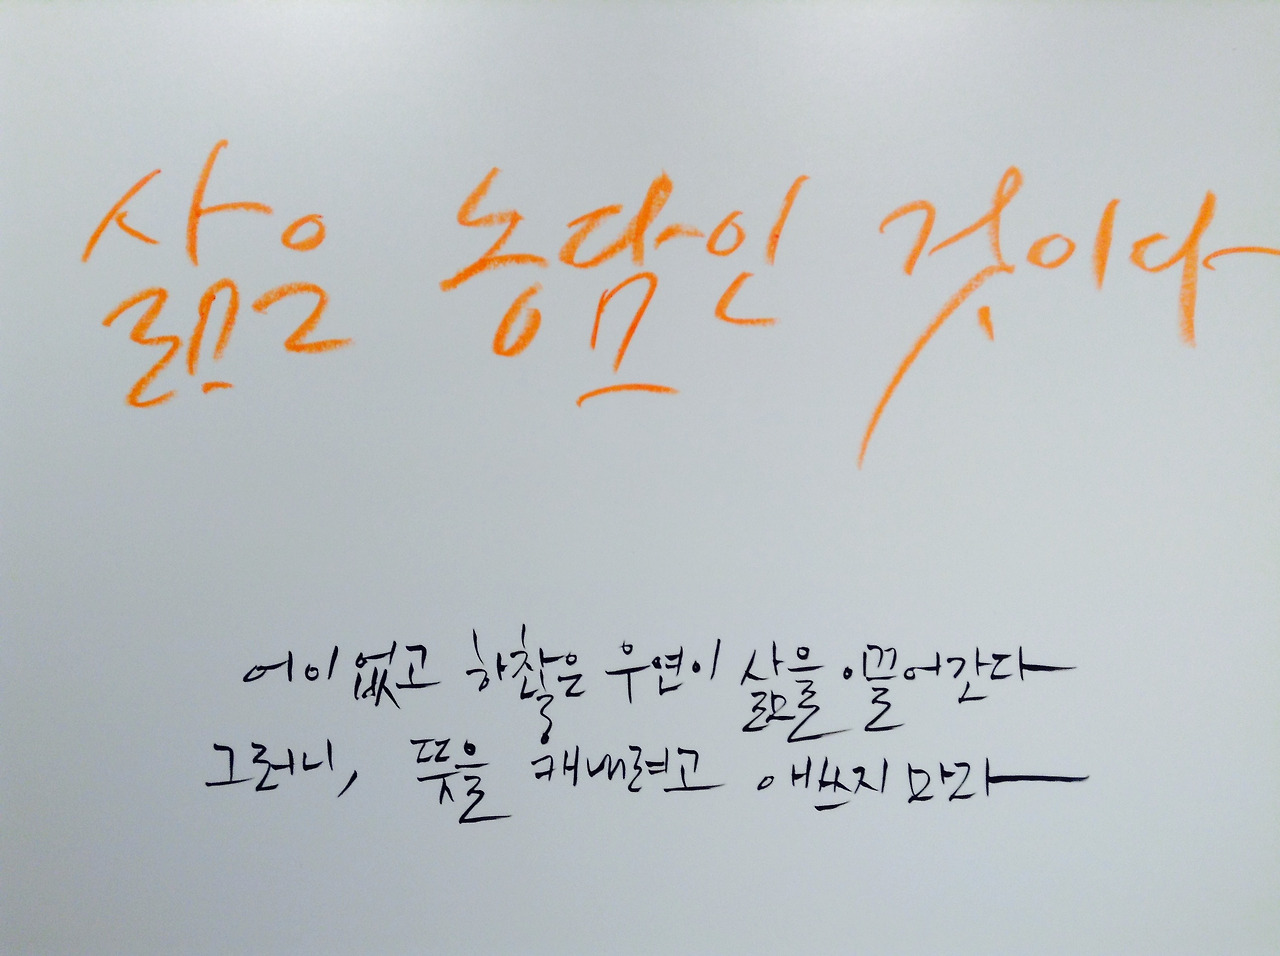 삶은 농담인 것이다
어이없고 하찮은 우연이 삶을 이끌어간다
그러니, 뜻을 캐내려고 애쓰지 마라